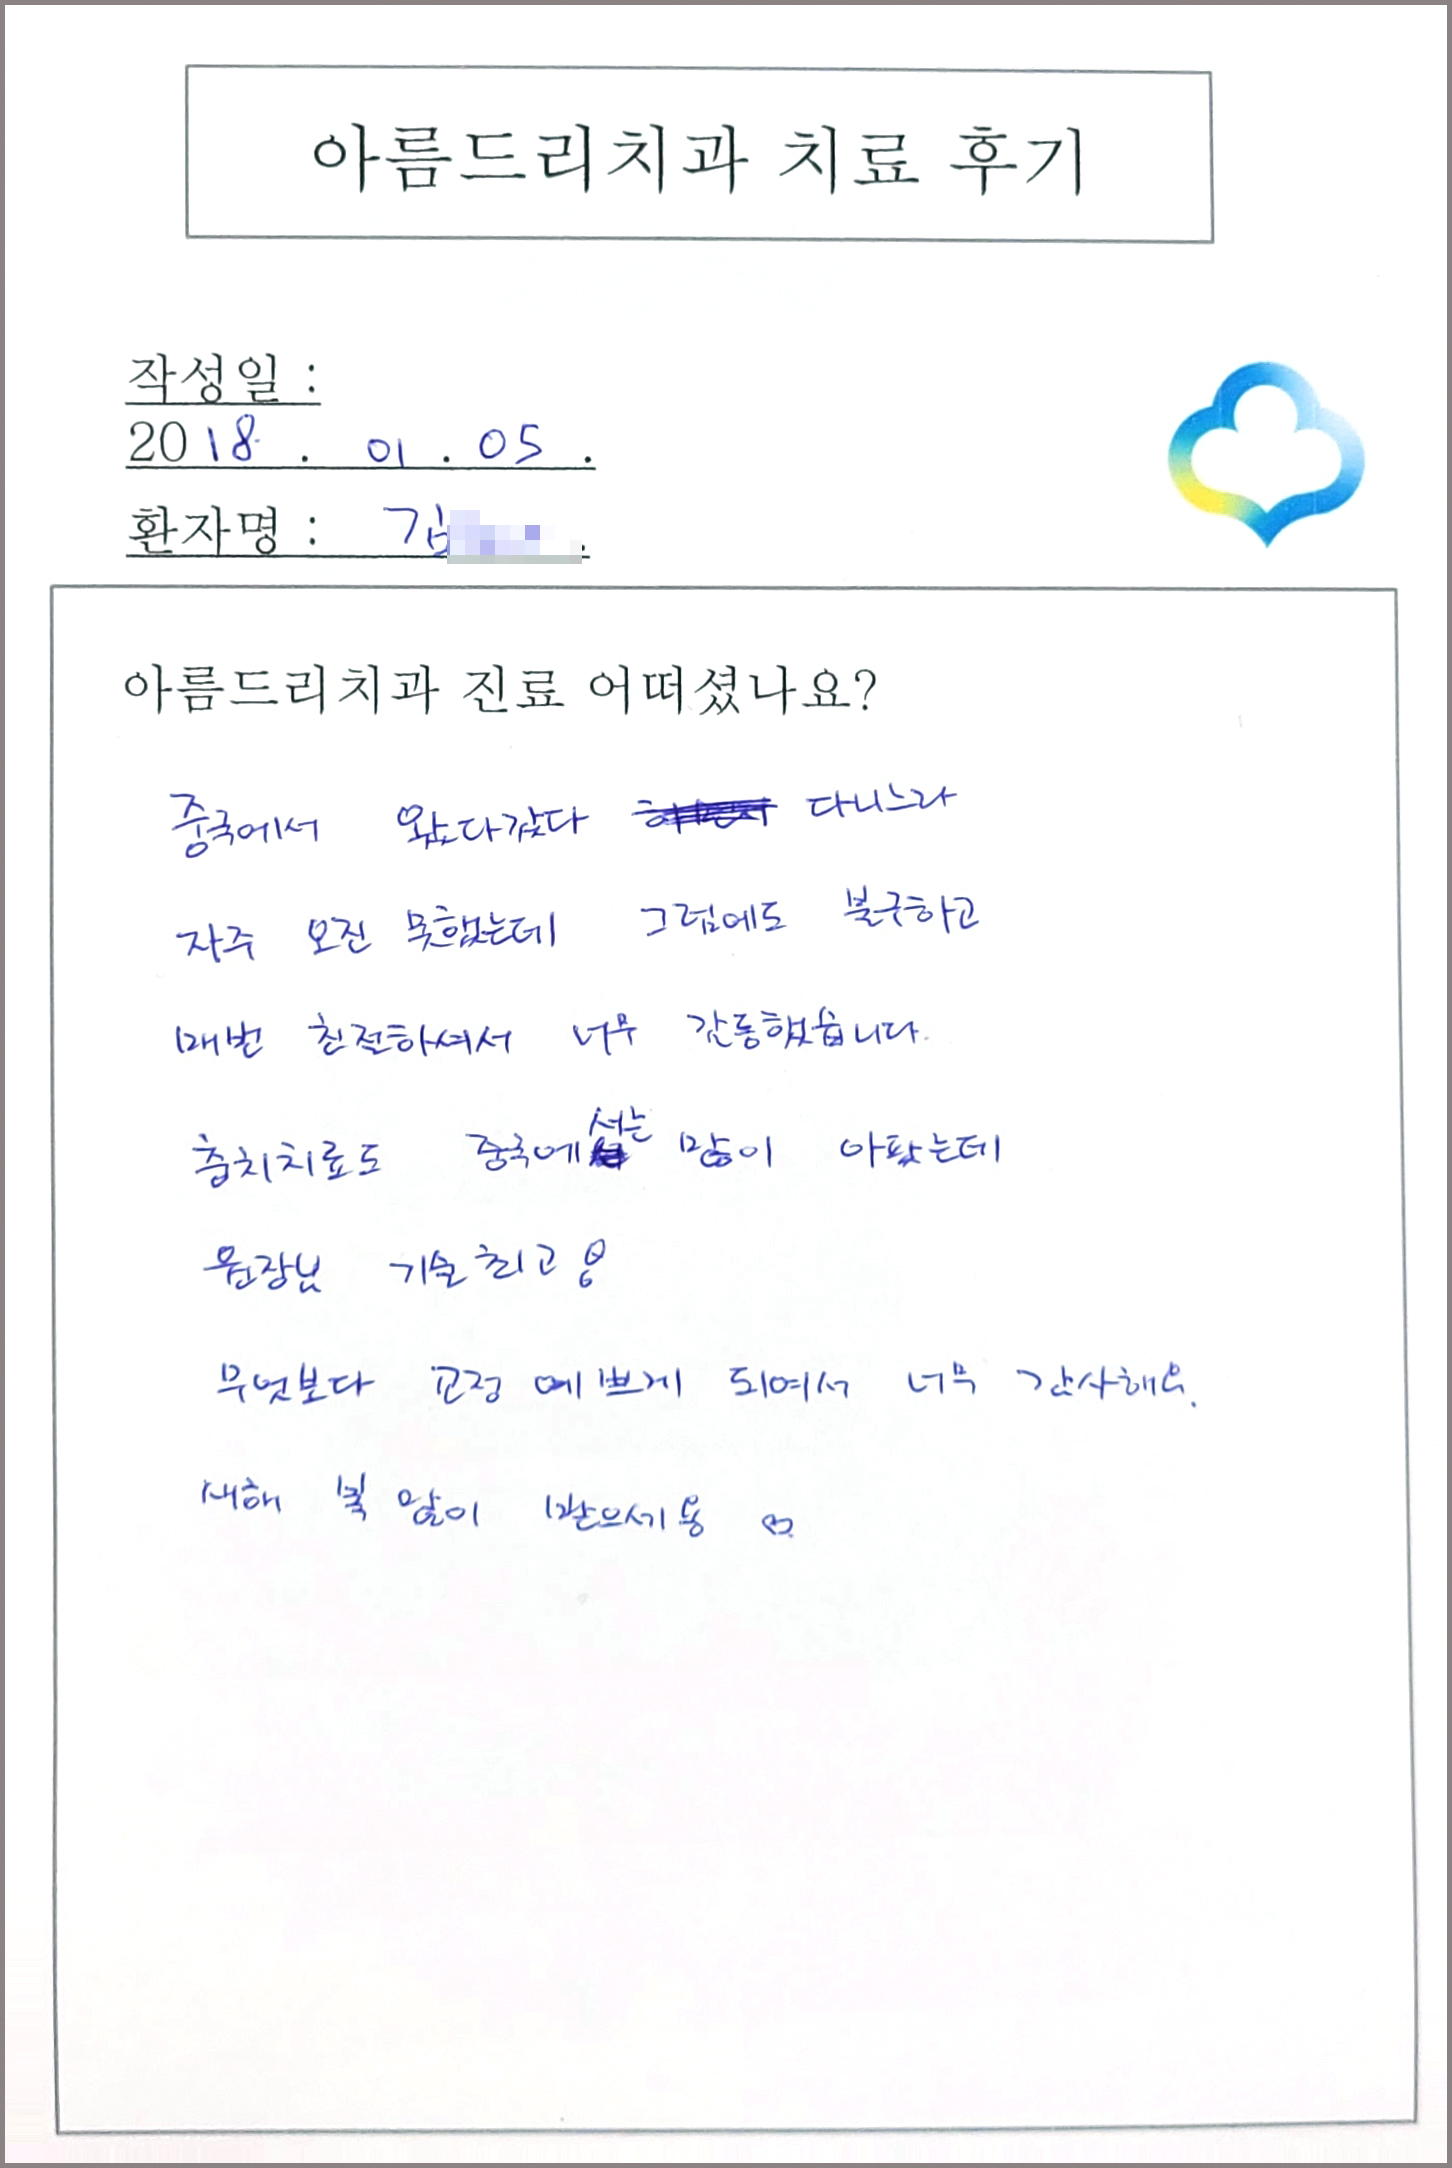 아름드리치과 치료 후기
작성일 :
2018 . 01 . 05 .
환자명 : 김
아름드리치과 진료 어떠셨나요?
중국에서 왔다갔다 다니느라
자주 오진 못했는데 그럼에도 불구하고
매번 친절하셔서 너무 감동했습니다.
충치치료도 중국에서는 많이 아팠는데
원장님 기술최고!
무엇보다 교정 예쁘게 되여서 너무 감사해요.
새해 복 많이 받으세용